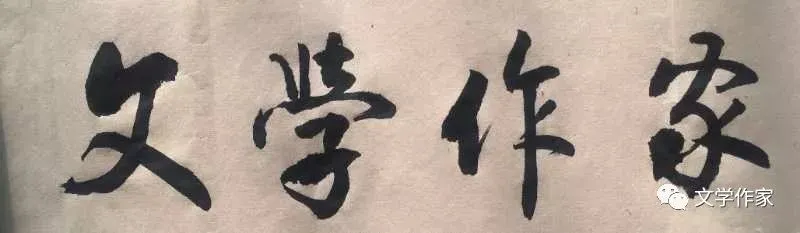 文學作家
文学作家